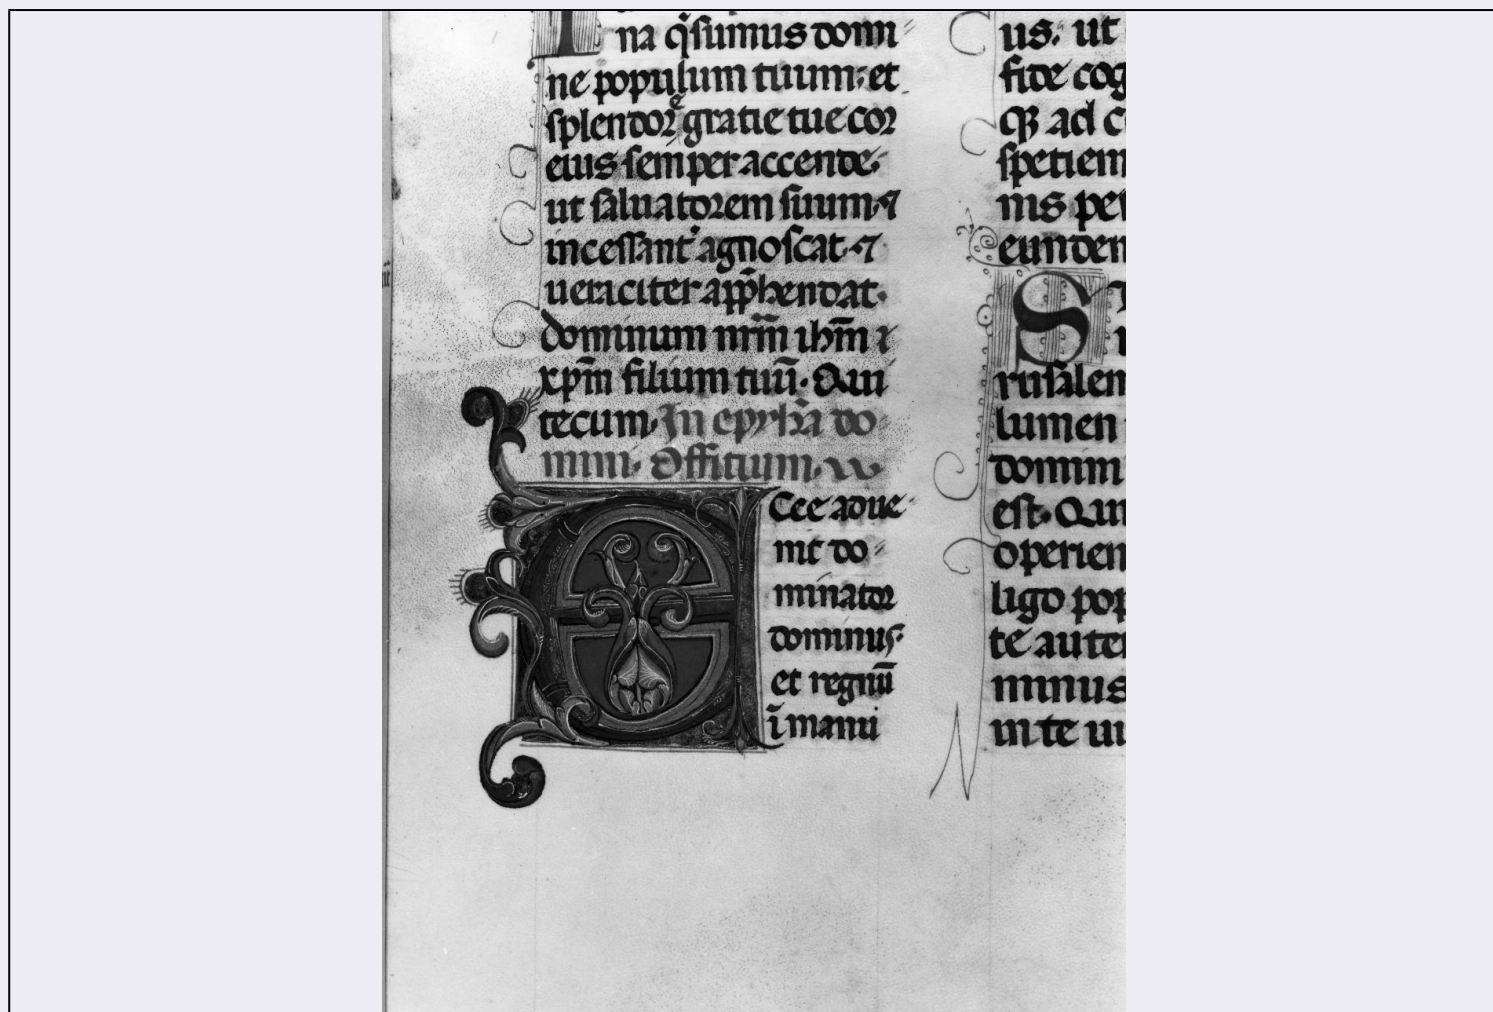 na q̃sumus domi
ne populum tuum· et
splendore gratie tue cor
eius semper accende·
ut saluatorem suum· ⁊
incessant᾽ agnoscat· ⁊
ueraciter app̃hendat·
dominum nr̃m ihm̃
xpm̃ filium tuũ· Qui
tecum· In epyhã do
mini· Offitium·
Ecce adue
nit do
minator
dominus·
et regnũ
ĩ manu
us· ut
fide cog
q̃ ad c
spetiem
nis per
eundem
S
rusalem
lumen
domini
est· Quia
operien
ligo pop
te autem
minus
in te ui